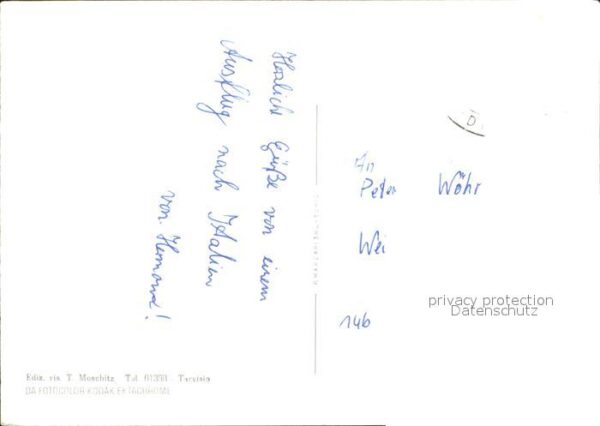 Herzliche Grüße von einem
Ausflug nach Italien
von Hermann!
An
Peter Wöhr
Wei
14b
D
privacy protection
Datenschutz
Ediz. ris. T. Moschitz Tel. 61351 - Tarvisio
DA FOTOCOLOR KODAK EKTACHROME